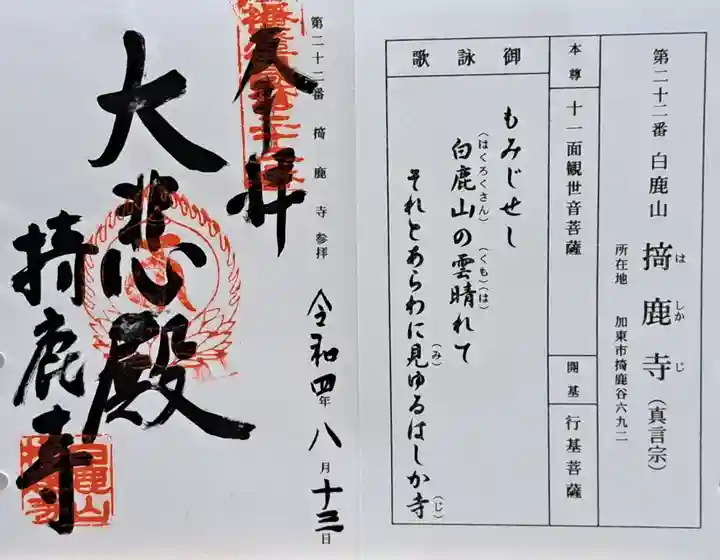 第二十二番 白鹿山
掎鹿寺（真言宗）
はしかじ
所在地 加東市掎鹿谷六九二
本尊 十一面観世音菩薩
開基 行基菩薩
御詠歌
もみじせし
白鹿山の雲晴れて
(はくろくさん) (くも)(は)
それとあらわに見ゆるはしか寺
(み) (じ)
第二十二番 掎鹿寺参拝
令和四年八月十三日
大悲殿
掎鹿寺